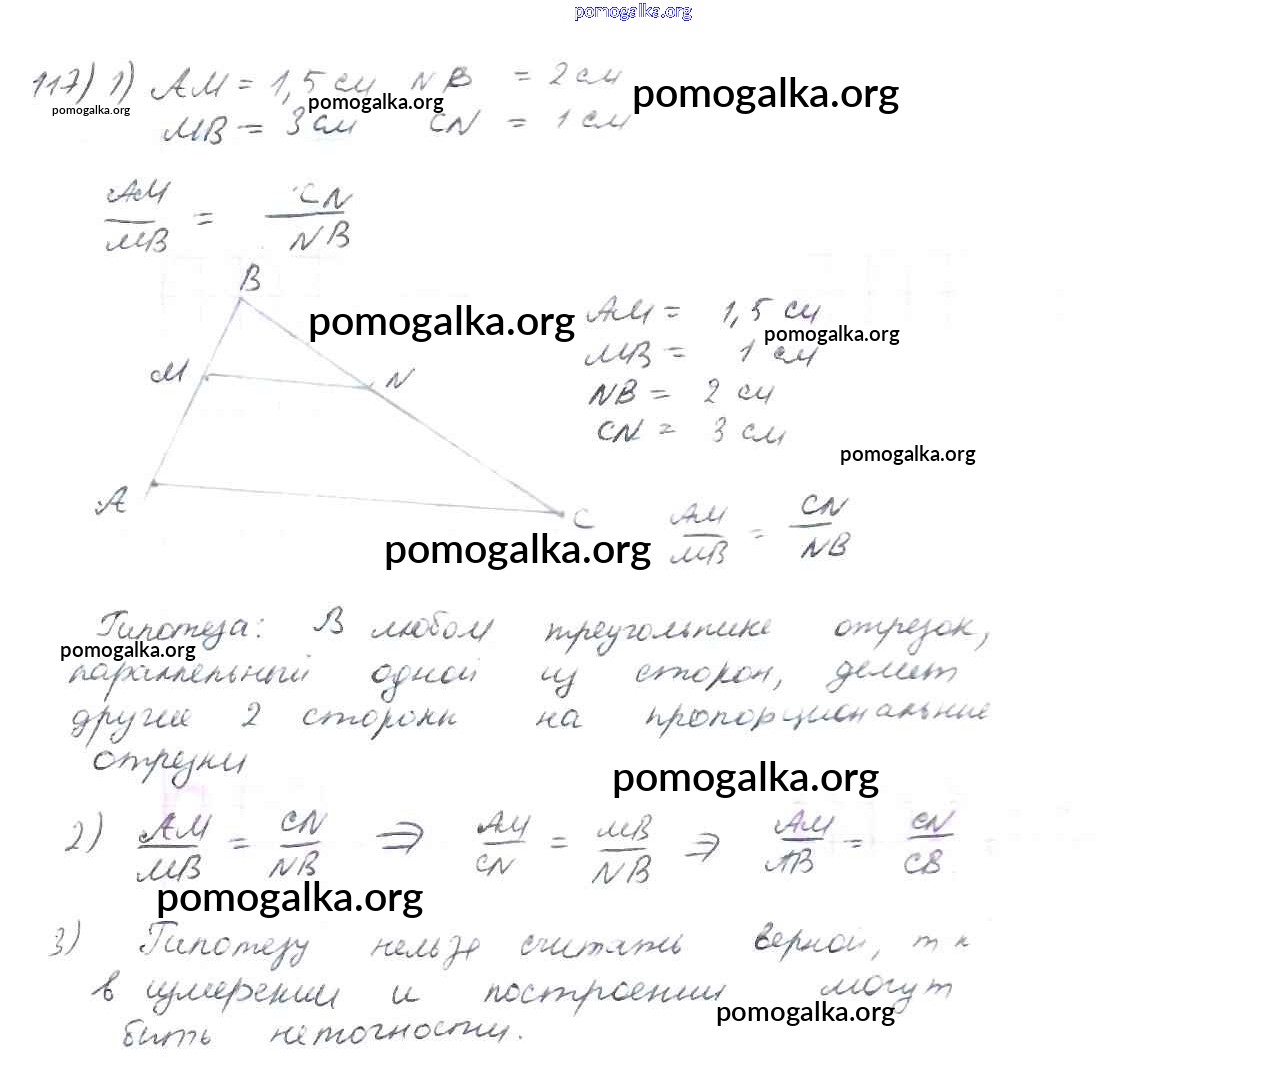 pomogalka.org
117) 1) AM = 1,5 см NB = 2 см
pomogalka.org pomogalka.org pomogalka.org
MB = 3 см CN = 1 см
AM/MB = CN/NB
B
pomogalka.org AM = 1,5 см
pomogalka.org
MB = 1 см
M N NB = 2 см
CN = 3 см
pomogalka.org
A C AM/MB = CN/NB
pomogalka.org
Гипотеза: В любом треугольнике отрезок,
pomogalka.org
параллельный одной из сторон, делит
другие 2 стороны на пропорциональные
отрезки
pomogalka.org
2) AM/MB = CN/NB ⇒ AM/CN = MB/NB ⇒ AM/AB = CN/CB
pomogalka.org
3) Гипотезу нельзя считать верной, т к
в измерении и построении могут
pomogalka.org
быть неточности.